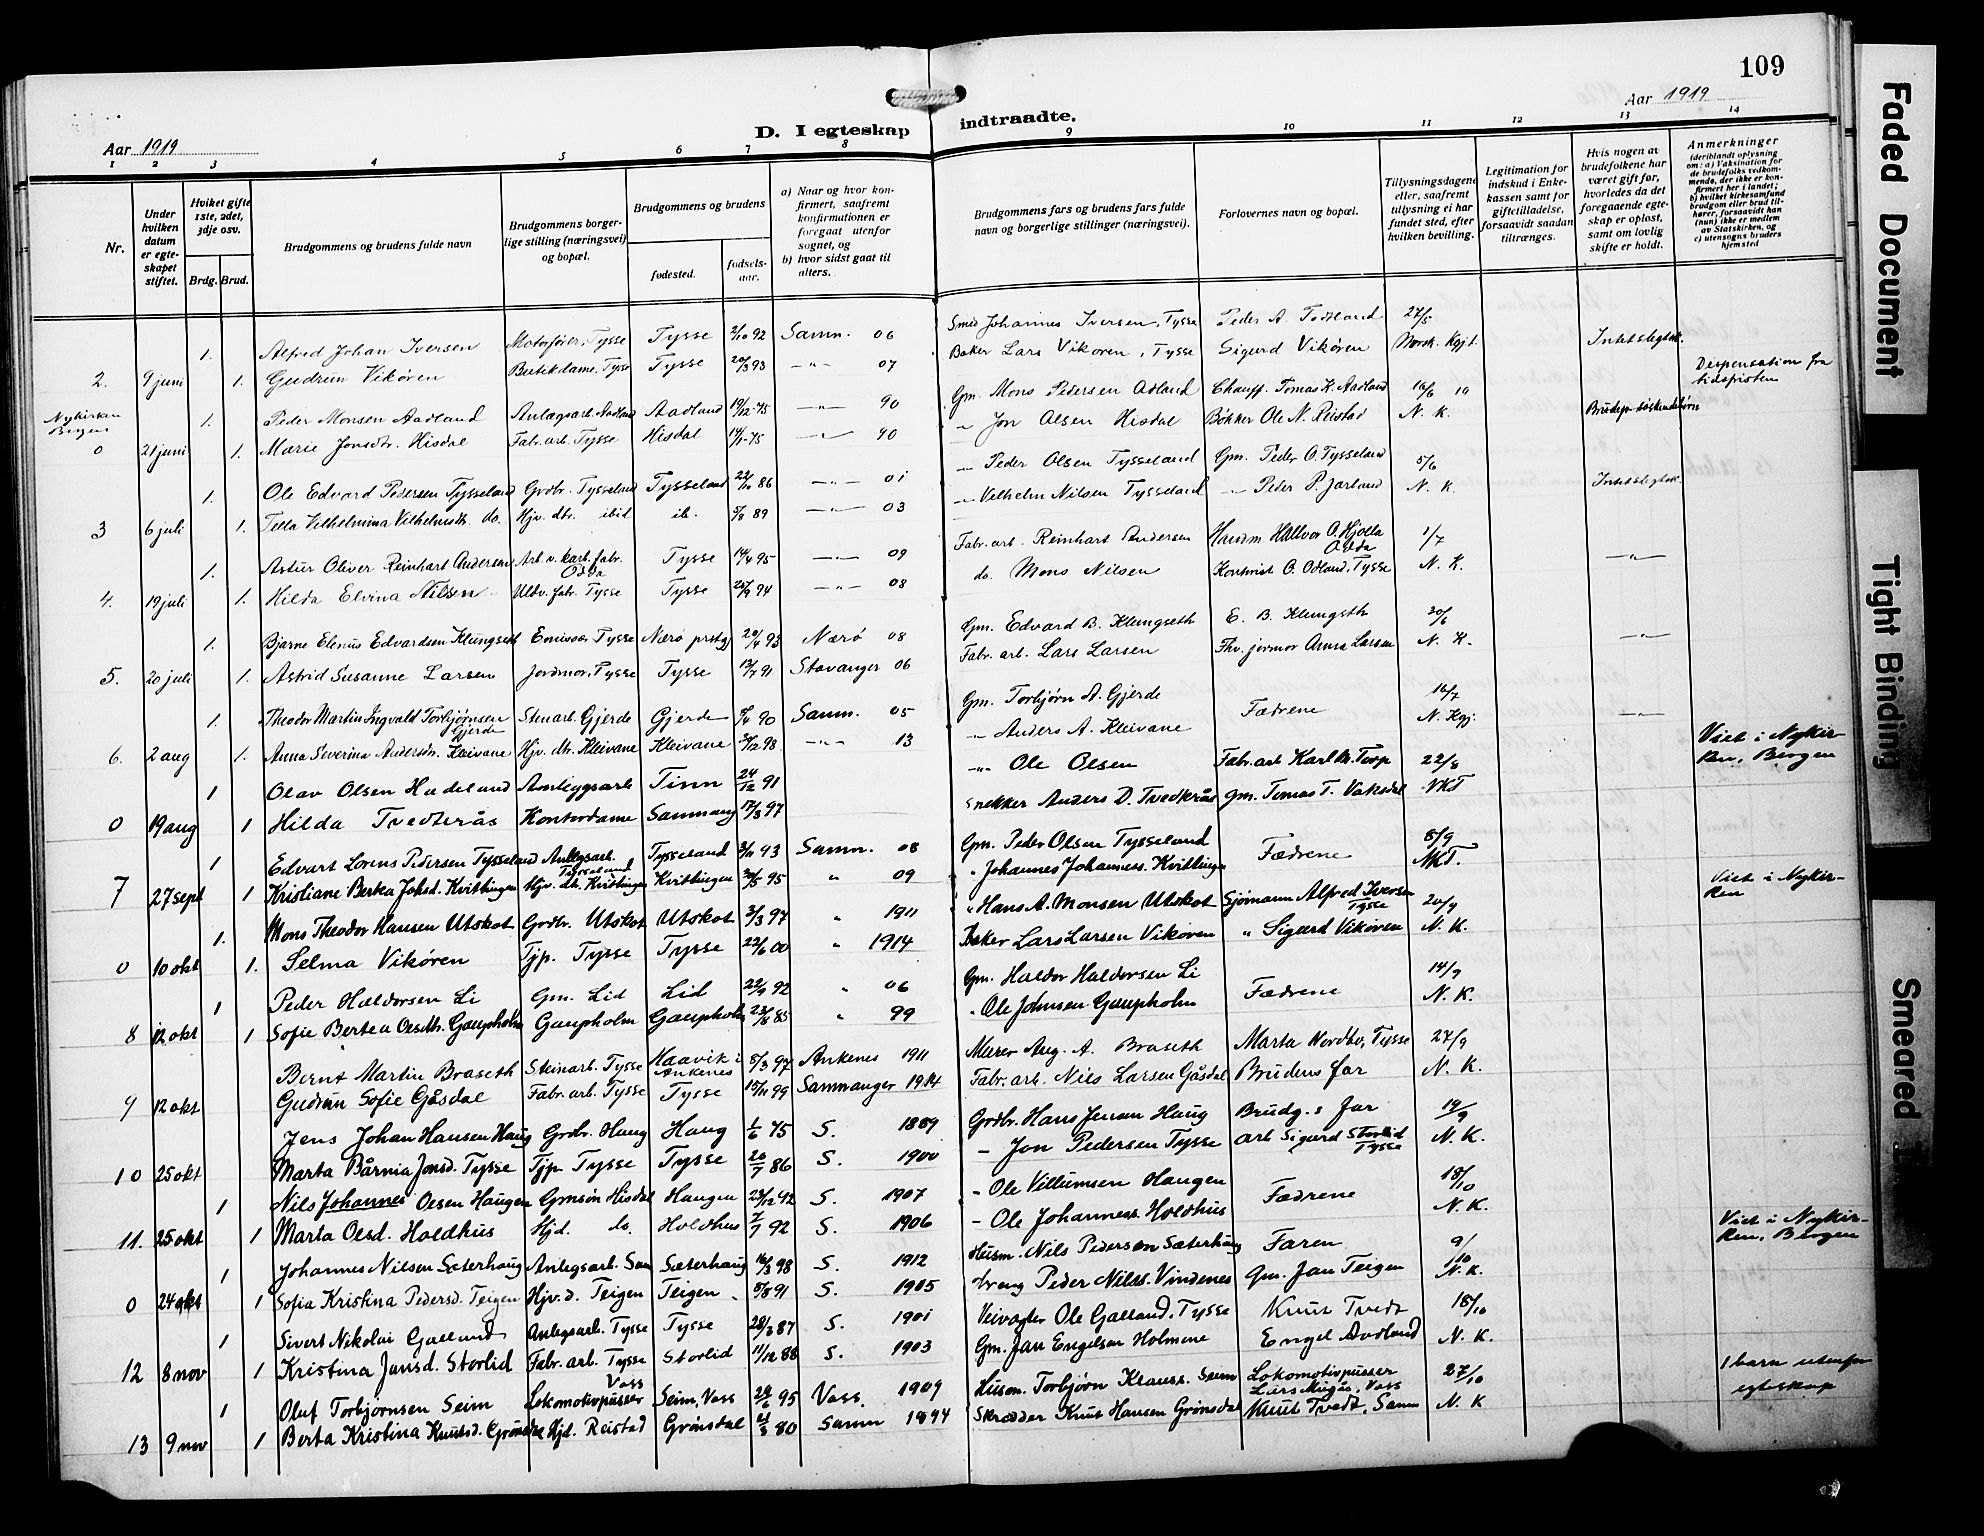 109
Aar 1919
D. I egteskap indtraadte.
Aar 1919
1 2 3 4 5 6 7 8 9 10 11 12 13 14
Nr.
Under hvilken datum er egteskapet stiftet.
Hviket gifte 1ste, 2det, 3dje osv.
Brdg. Brud.
Brudgommens og brudens fulde navn
Brudgommens borgerlige stilling (næringsvei) og bopæl.
Brudgommens og brudens
fødested.
fødselsaar.
a) Naar og hvor konfirmert, saafremt konfirmationen er foregaat utenfor sognet, og
b) hvor sidst gaat til alters.
Brudgommens fars og brudens fars fulde navn og borgerlige stillinger (næringsvei).
Forlovernes navn og bopæl.
Tillysningsdagene eller, saafremt tillysning ei har fundet sted, efter hvilken bevilling.
Legitimation for indskud i Enkekassen samt for giftetilladelse, forsaavidt saadan tiltrænges.
Hvis nogen av brudefolkene har været gift før, hvorledes da det foregaaende egteskap er opløst, samt om lovlig skifte er holdt.
Anmerkninger
(deriblandt oplysning om: a) Vaksination for de brudefolks vedkommende, der ikke er konfirmert her i landet; b) hvilket kirkesamfund brudgom eller brud tilhører, forsaavidt han (hun) ikke er medlem av Statskirken, og c) utensogns bruders hjemsted
1. Alfred Johan Iversen Motorfører, Tysse Tysse 2/10 92 Samn. 06 Smed Johannes Iversen, Tysse Peder A. Todland 27/5
2. 9 juni 1. Gudrun Vikøren Butikdame, Tysse Tysse 20/3 93 -"- 07 Baker Lars Vikøren, Tysse Sigurd Vikøren Norsk. Kgjt. Intet slegtsk. Dispensation fra tidsfristen
Nykirken Bergen 1. Peder Monsen Aadland Anlægsarb. Aadland Aadland 19/12 75 -"- 90 Gm. Mons Pedersen Adland Chauff. Tomas K. Aadland 16/6 19
0 21 juni 1. Marie Jonsdtr. Hisdal Fab. arb. Tysse Hisdal 14/1 75 -"- 90 " Jon Olsen Hisdal Bøkker Ole N. Reistad N. K.
1. Ole Edvard Pedersen Tysseland Grdbr. Tysseland Tysseland 22/10 86 -"- 01 -"- Peder Olsen Tysseland Gm. Peder O. Tysseland 5/6
3 6 juli 1. Tella Vilhelmina Vilhelmsdt. do. Hjv. dtr. ibid ib. 5/8 89 -"- 03 -"- Vilhelm Nilsen Tysseland -"- Peder P. Jarland N. K. Intet slegtsk.
1. Astur Oliver Reinhart Andersen Arb. v. karb. fabr. Odda Tysse 14/4 95 -"- 09 Fabr. arb. Reinhart Andersen Husm. Hallvor O. Hjolla Odda 1/7
4. 19 juli 1. Hilda Elvina Nilsen Uldv. fabr. Tysse Tysse 25/9 94 -"- 08 do. Mons Nilsen Kontorist O. Odland, Tysse N. K. -"-
1. Bjarne Elenus Edvardsen Klungseth Tysse Nærø prstgj 20/4 93 Nærø 08 Gm. Edvard B. Klungseth E. B. Klungseth 20/6
5. 20 juli 1. Astrid Susanne Larsen Jordmor, Tysse Tysse 12/7 91 Stavanger 06 Fabr. arb. Lars Larsen Fhv. jormor Anna Larsen N. K. -"-
1. Theodor Martin Ingvald Torbjørnsen Gjerde Stenarb. Gjerde Gjerde 90 Samn. 05 Gm. Torbjørn A. Gjerde Fædrene 16/7
6. 2 aug 1. Anna Severina Andersdtr. Kleivane Hjv. dtr. Kleivane Kleivane 98 -"- 13 " Anders A. Kleivane N. Kgj. -"-
1 Olav Olsen Hadeland Anlegsarb Tinn 24/12 91 -"- Ole Olsen Fabr. arb Karl M. Torp 22/8 Viet i Nykirken, Bergen
0 19 aug 1 Hilda Tvedterås Kontordame Samnang 17/3 97 Snekker Anders D. Tvedterås Gm. Tomas T. Vaksdal NKT
1 Edvart Lorens Pedersen Tysseland Anlegsarb. Tysseland Tysseland 3/11 93 Samn. 08 Gm. Peder Olsen Tysseland Fædrene 8/9
7 27 sept 1 Kristiane Bertea Johsd. Kvittingen Hjv. dtr. Kvittingen Kvittingen 95 " 09 " Johannes Johanness. Kvittingen NKT.
1. Mons Theodor Hansen Utskot Grdbr. Utskot Utskot 3/3 97 " 1911 " Hans A. Monsen Utskot Sjømann Alfred Iversen Tysse 20/9 Viet i Nykirken
0 10 okt 1. Selma Vikøren Tjp. Tysse Tysse 22/6 00 " 1914 Baker Lars Larsen Vikøren " Sigurd Vikøren N. K.
1 Peder Haldorsen Li Gm. Lid Lid 22/9 92 " 06 Gm. Haldor Haldorsen Li Fædrene 14/9
8 12 okt 1 Sofie Bertea Olsdtr. Gaupholm Gaupholm Gaupholm 23/8 85 " 99 " Ole Johnsen Gaupholm N. K.
Bernt Martin Braseth Steinarb. Tysse Haavik i Ankenes 8/3 97 Ankenes 1911 Murer Aug. A. Braseth Marta Nordbø, Tysse 27/9
9 12 okt Gudrun Sofie Gåsdal Fabr. arb. Tysse Tysse 15/11 99 Samnanger 1914 Fabr. arb. Nils Larsen Gåsdal Brudens far N. K.
Jens Johan Hansen Haug Grdbr. Haug Haug 1/6 75 S. 1889 Grdbr. Hans Jensen Haug Brudg.s far 19/9
10 25 okt Marta Bårnia Jonsd. Tysse Tjp Tysse Tysse 20/7 86 S. 1900 - Jon Pedersen Tysse arb Sigurd Storlid Tysse N. K.
1 Nils Johannes Olsen Haugen Gmsøn Hisdal Haugen 23/12 92 S. 1907 - Ole Villumsen Haugen Fædrene 18/10
11. 25 okt 1 Marta Olsd. Holdhus Hjd. do. Holdhus 7/7 92 S. 1906 - Ole Johanness. Holdhus N. K.
1 Johannes Nilsen Sæterhaug Anlegsarb. Sam Sæterhaug 16/3 98 S. 1912 Husm. Nils Pedersen Sæterhaug Faren 9/10 Viet i Nykirken, Bergen
0 24 okt 1 Sofia Kristina Pedersd. Teigen Hjv. d. Teigen Teigen 8/8 91 S. 1905 Peder Nilss. Vindenes Gm. Jan Teigen N. K.
1 Sivert Nikolai Gaeland Anlegsarb. Tysse Tysse 28/3 87 S. 1901 Veivogter Ole Gaeland, Tysse Knut Tvedt 18/10
12 8 nov 1 Kristina Jansd. Storlid Fabr. arb. Tysse Storlid 11/12 88 S. 1903 Gm. Jan Engelsen Holmene Engel Aadland N. K.
1 Oluf Torbjørnsen Seim Lokomotivpusser Voss Seim, Voss 95 Voss. 1909 Husm. Torbjørn Knutss. Seim Lokomotivpusser Lars Mugås, Voss 27/10 1 barn utenfor egteskap
13 9 nov 1 Berta Kristina Knutsd. Grønsdal Hjd. Reistad Grønsdal 80 Samn 1894 Skrædder Knut Hansen Grønsdal Knut Tvedt, Samn N. K
Faded Document
Tight Binding
Smeared